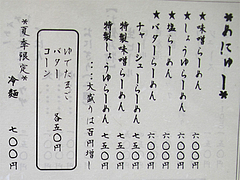 ＊めにゅー＊
★味噌らーめん 六〇〇円
★しょうゆらーめん 六〇〇円
★塩らーめん 六〇〇円
★バターらーめん 六五〇円
チャーシューらーめん 七五〇円
特製味噌らーめん 七五〇円
特製しょうゆらーめん 七五〇円
…大盛りは百円増し
ゆでたまご
バター 各五〇円
コーン
＊夏季限定＊
冷麺 七〇〇円